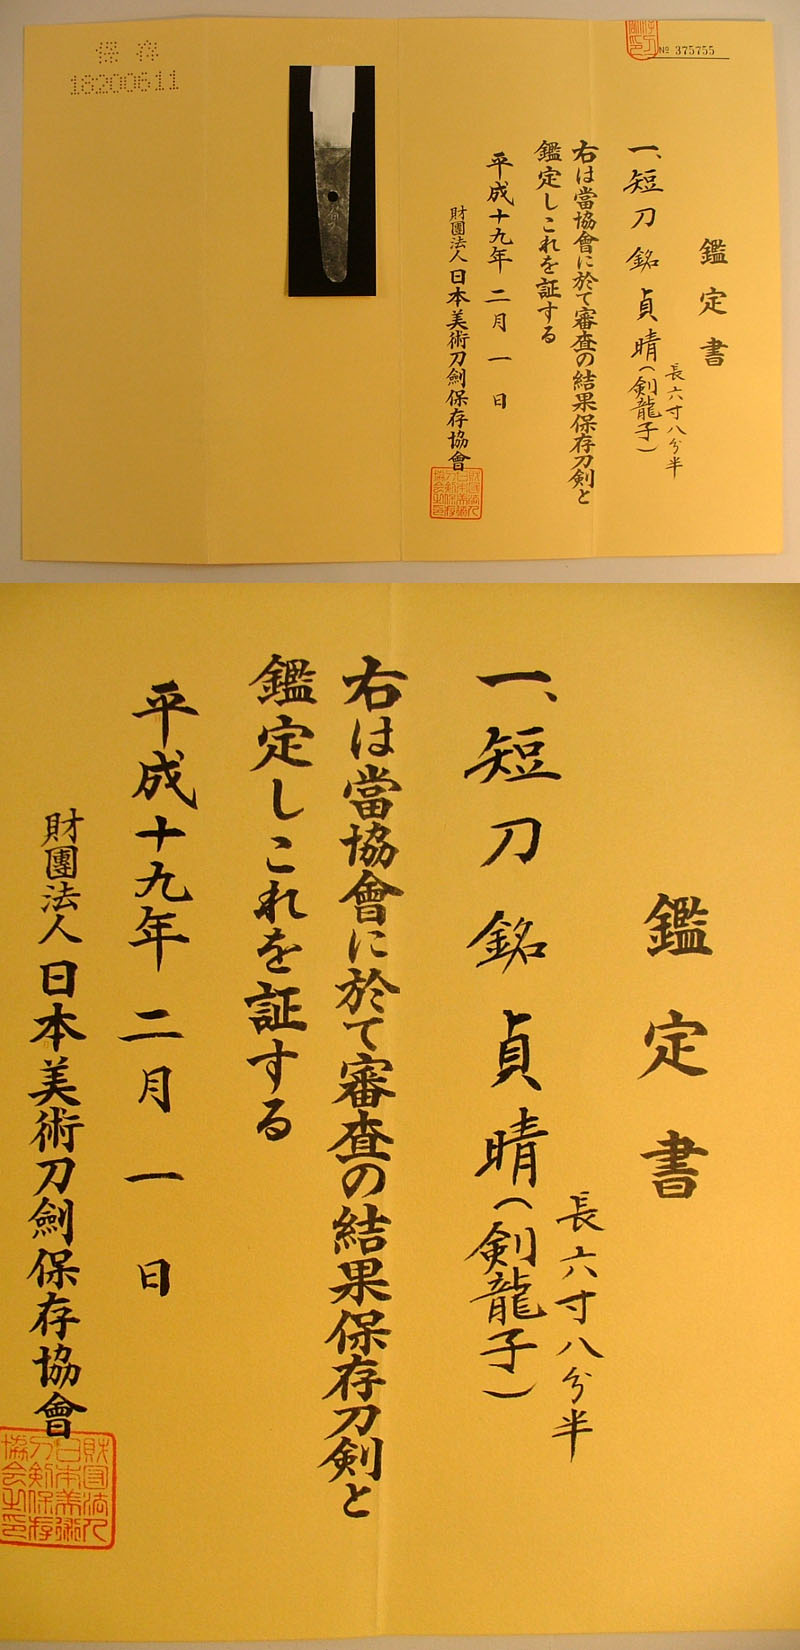 鑑定書
№ 375755
一、短刀 銘 貞晴(剣龍子)
長六寸八分半
右は當協會に於て審査の結果保存刀剣と
鑑定しこれを証する
平成十九年 二月 一 日
財團法人 日本美術刀劍保存協會
財団法人
日本美術
刀剣保存
協会之印
保存
18200611
鑑定書
一、短刀 銘 貞晴(剣龍子)
長六寸八分半
右は當協會に於て審査の結果保存刀剣と
鑑定しこれを証する
平成十九年 二月 一 日
財團法人 日本美術刀劍保存協會
財団法人
日本美術
刀剣保存
協会之印